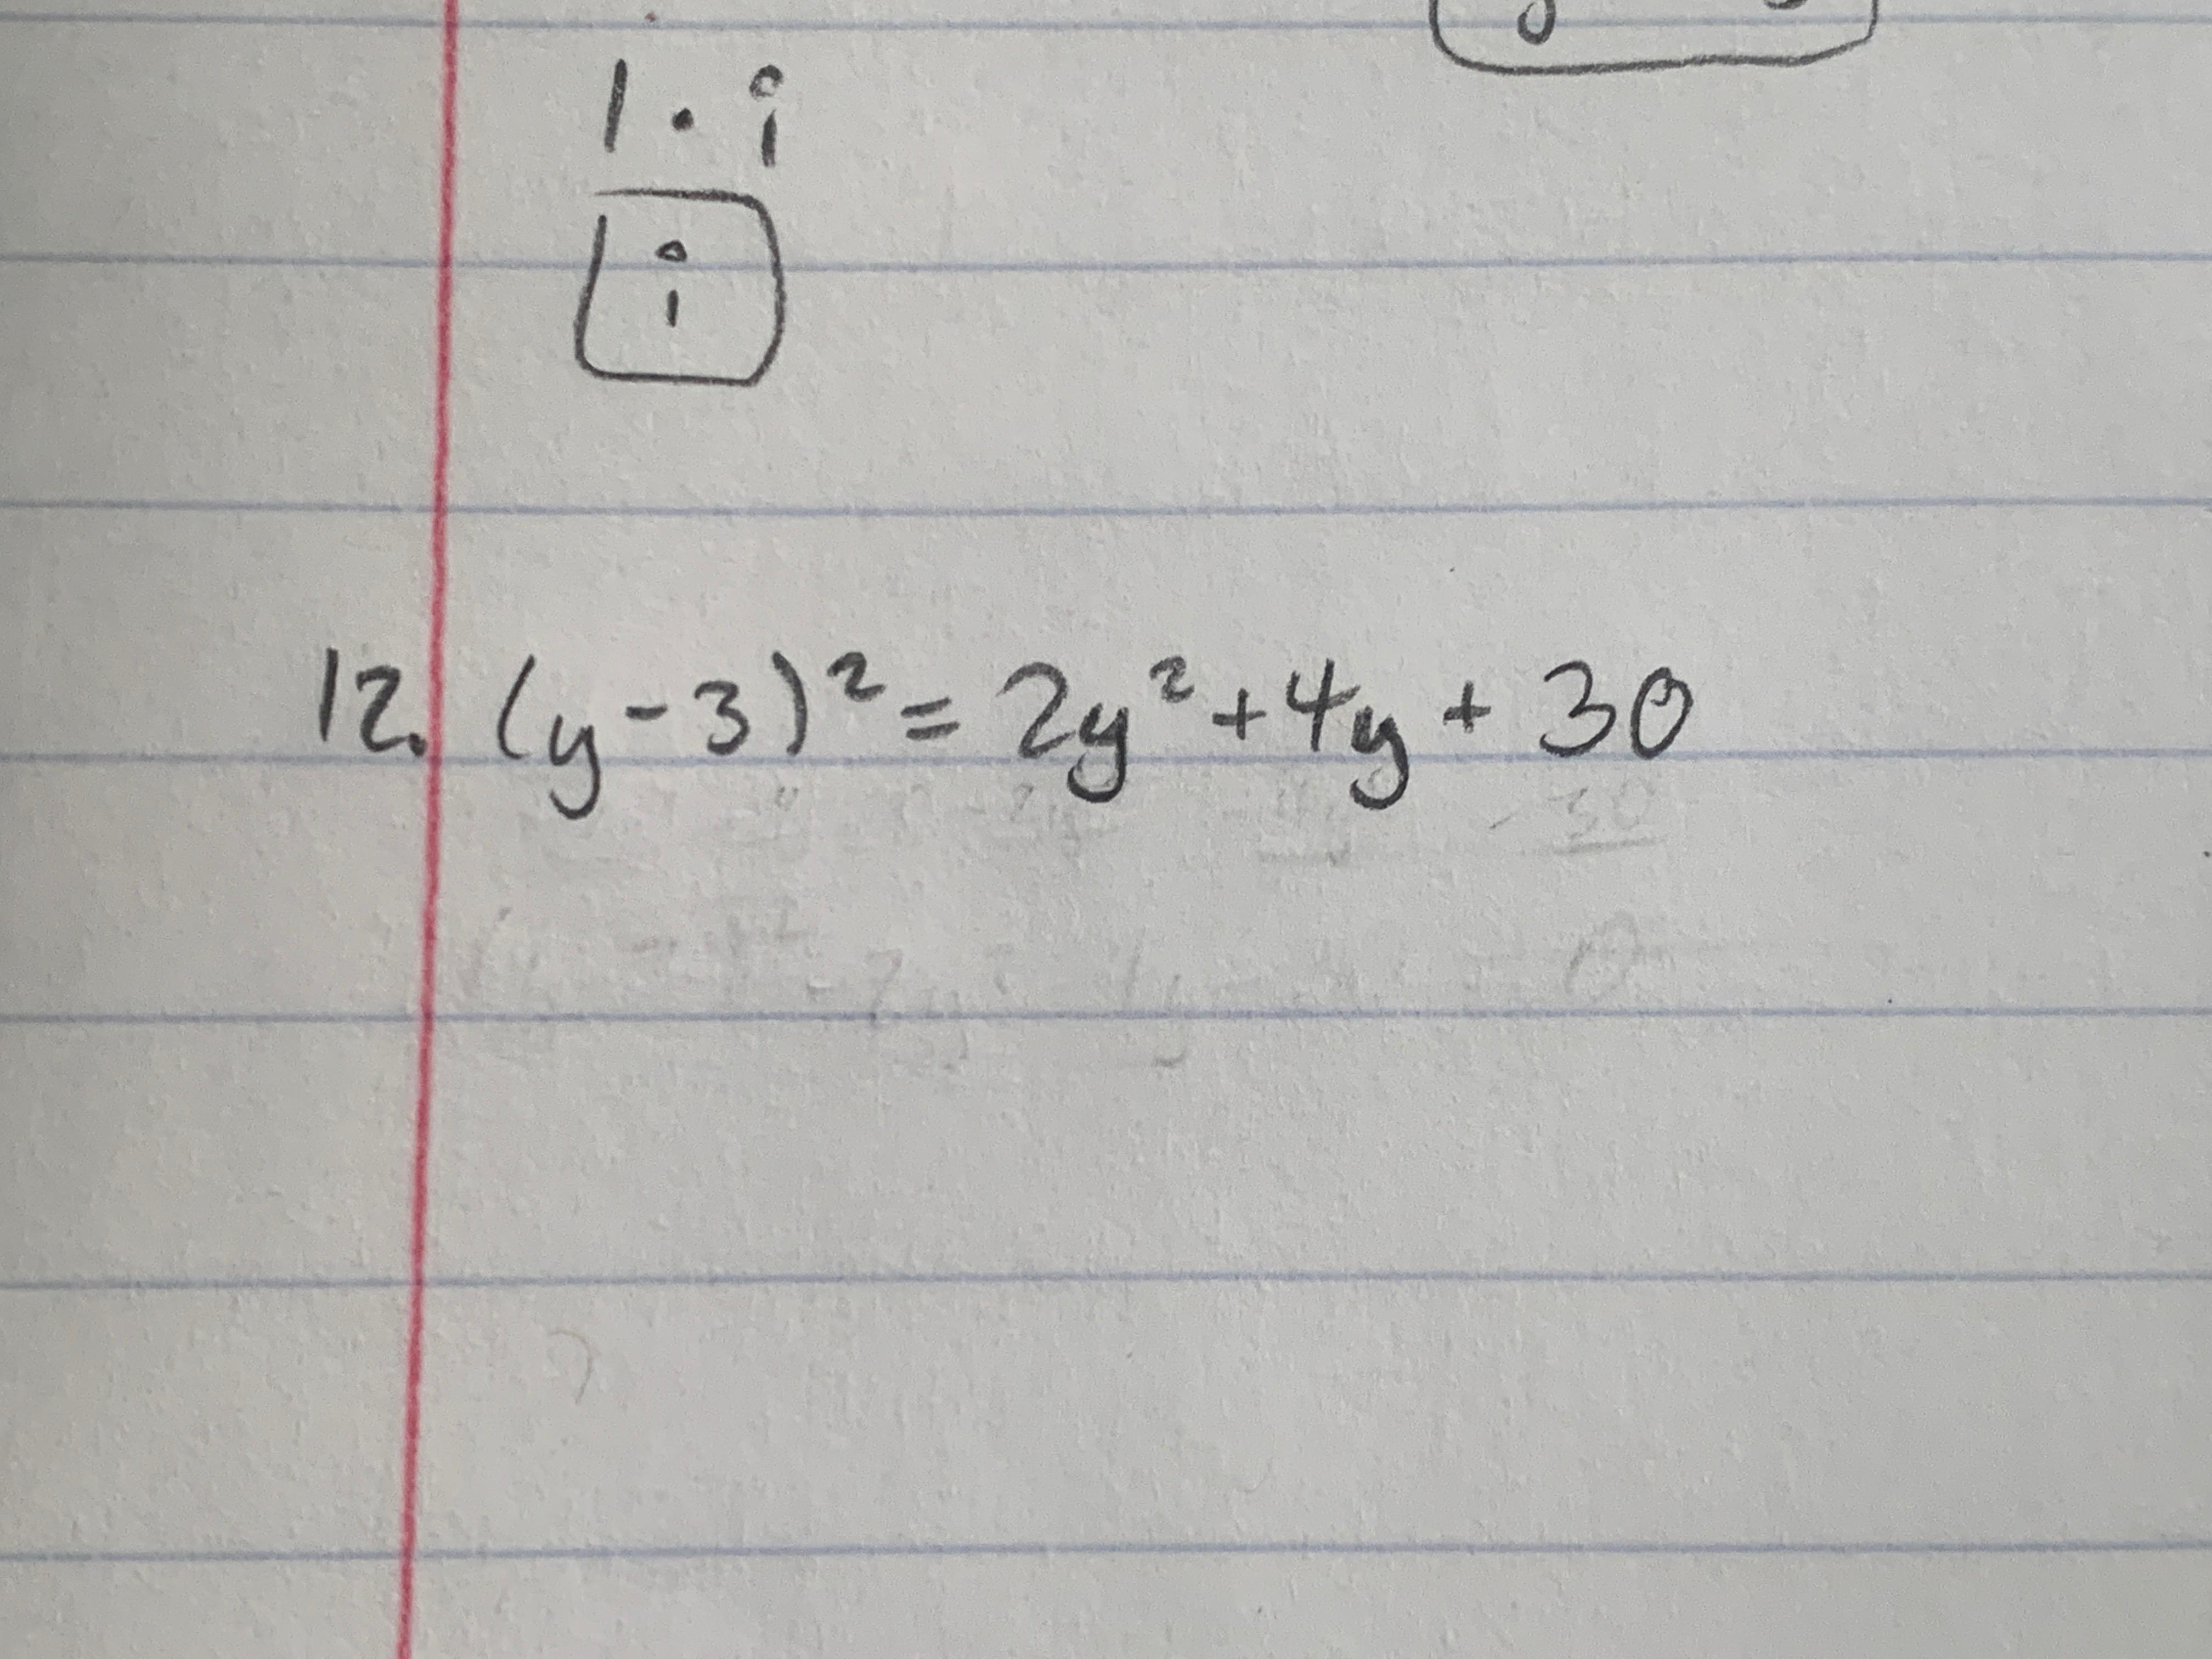 1 · i
i
12. (y-3)² = 2y² + 4y + 30
- 30